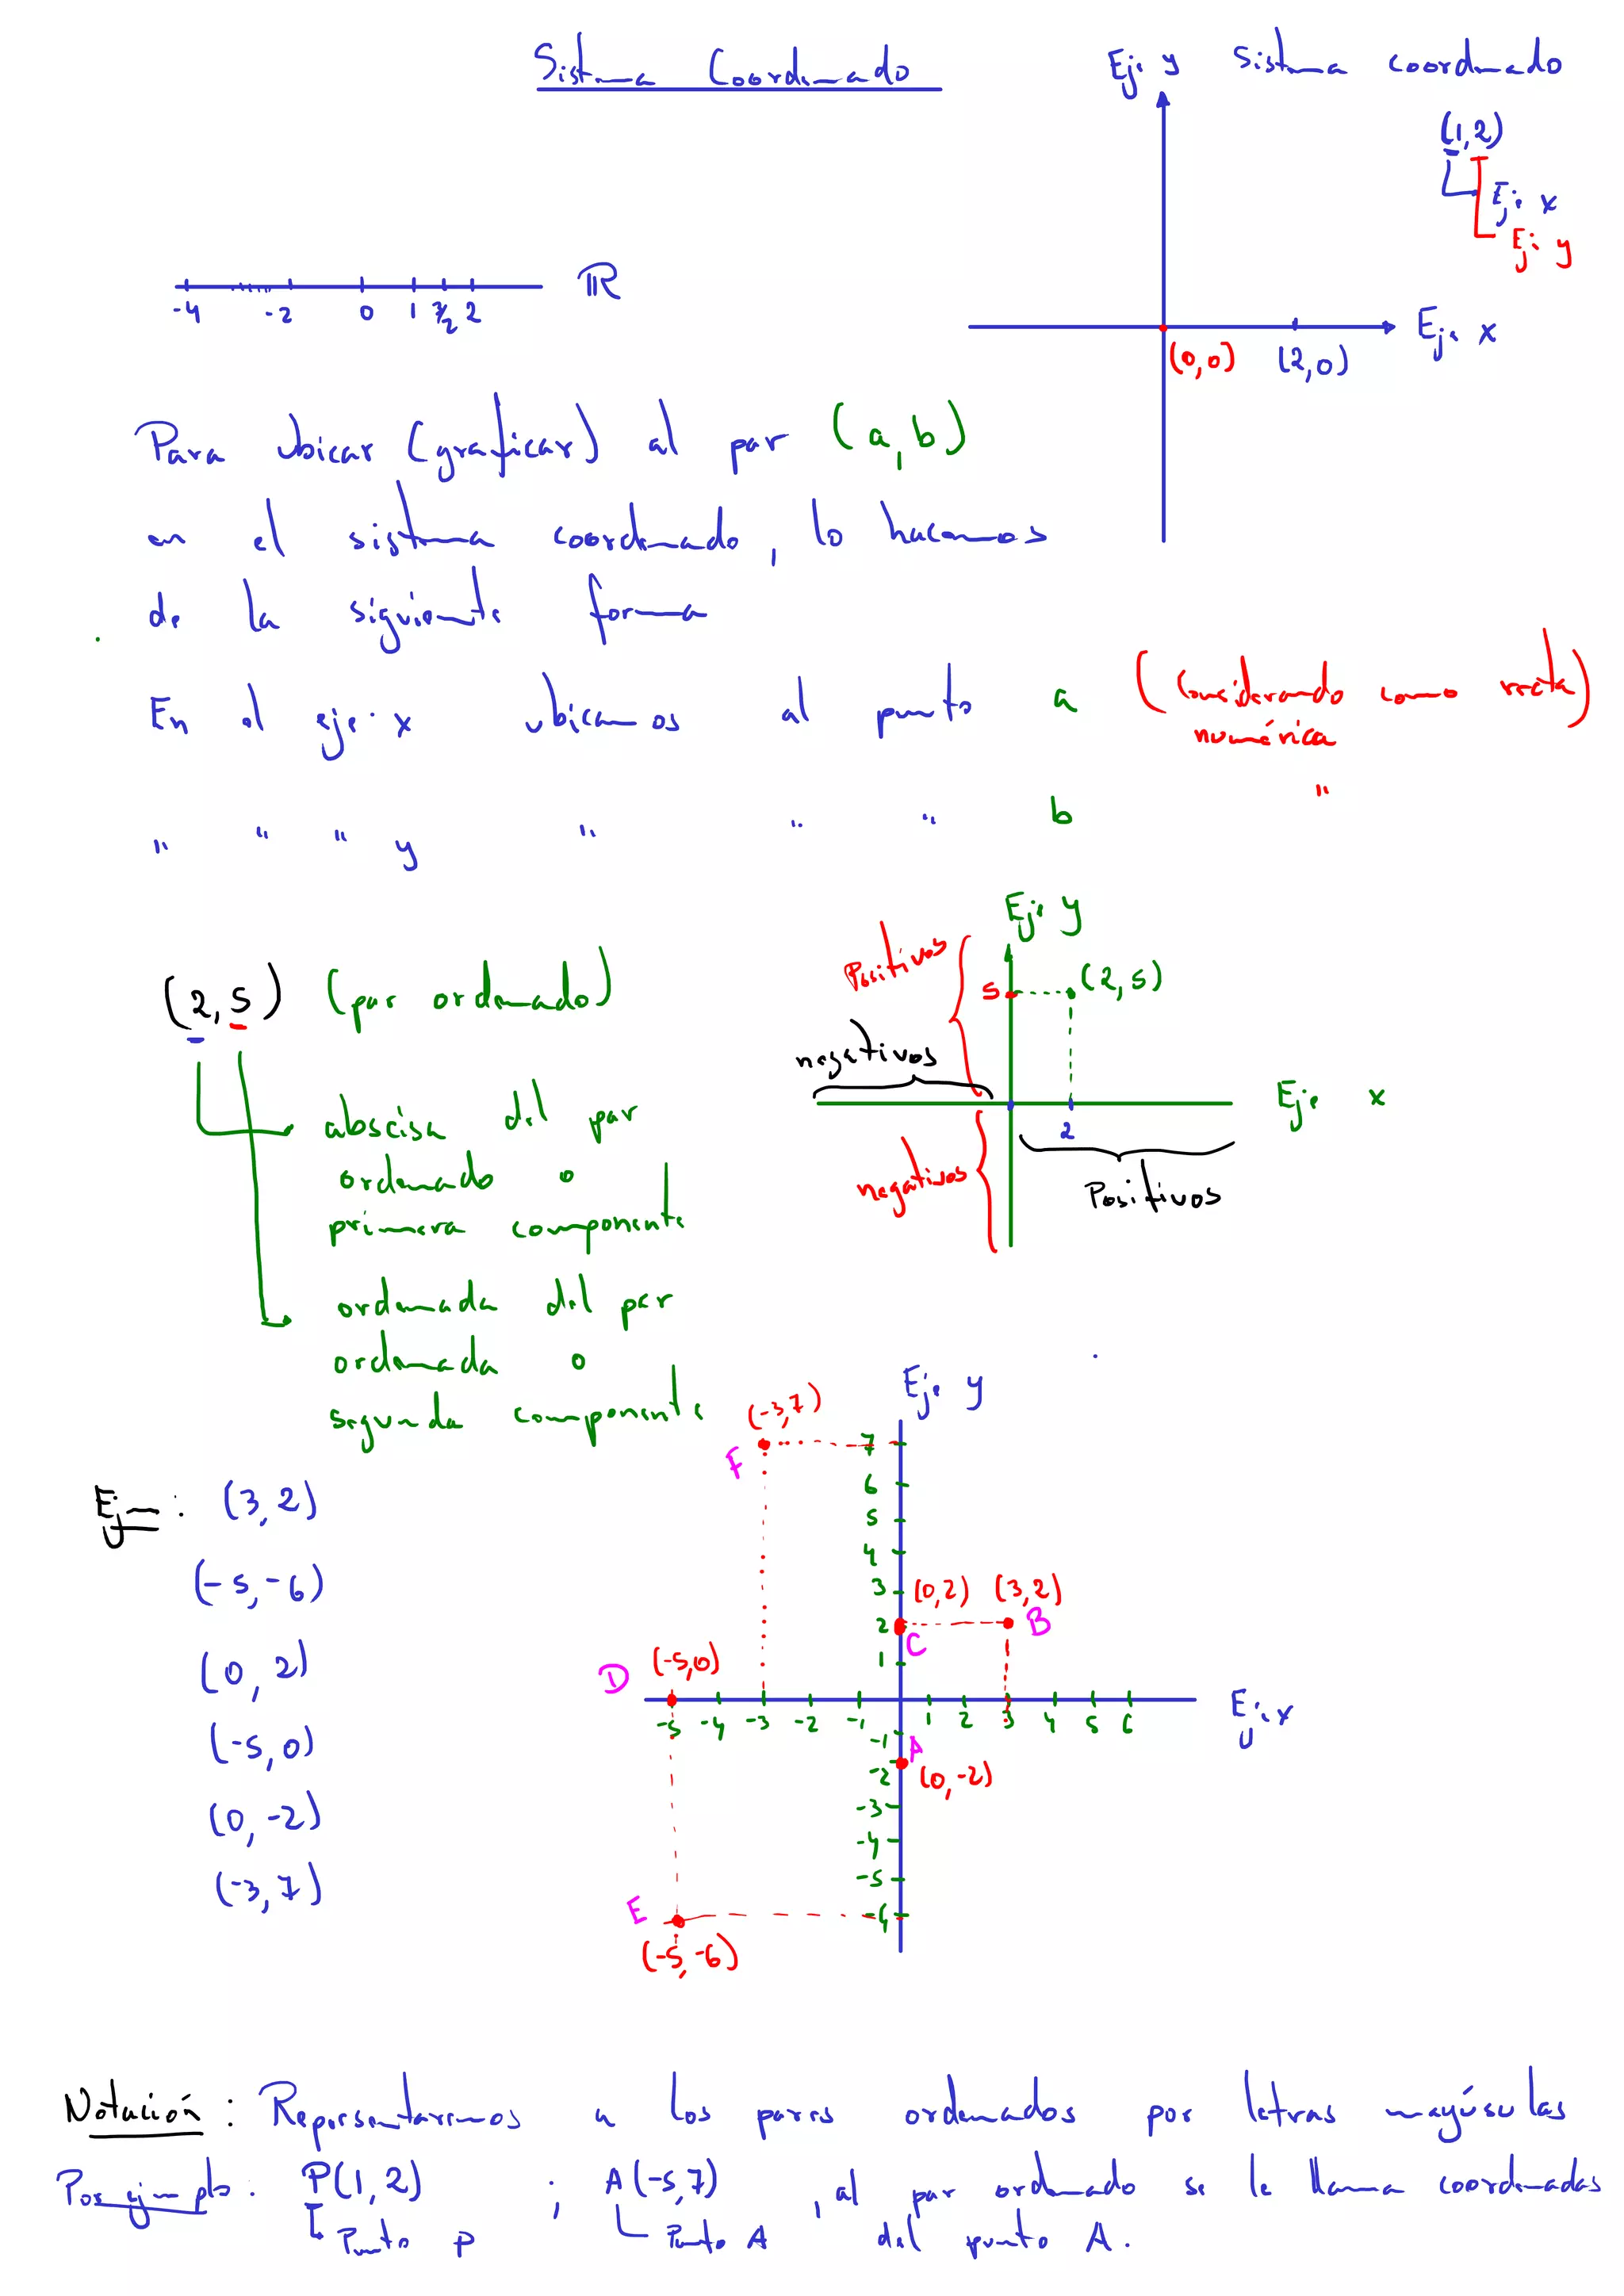 Sistema Coordenado
Eje y Sistema coordenado
(1,2)
Eje x
Eje y
ℝ
-4 -2 0 1 3/2 2
(0,0) (2,0) Eje x
Para ubicar (graficar) al par (a,b)
en el sistema coordenado, lo hacemos
de la siguiente forma
En el eje x ubicamos al punto a (Considerando como recta
numérica)
" " " y " " " b "
Eje y
Positivos
5 (2,5)
negativos
Eje x
2
negativos
Positivos
(2,5) (par ordenado)
abscisa del par
ordenado o
primera componente
ordenada del par
ordenada o
segunda componente
Ejm: (3,2)
(-5,-6)
(0,2)
(-5,0)
(0,-2)
(-3,7)
Eje y
(-3,7)
F
7
6
5
4
3 (0,2) (3,2)
2 C B
1
D (-5,0)
-5 -4 -3 -2 -1 1 2 3 4 5 6 Eje x
-1 A
-2 (0,-2)
-3
-4
-5
E
(-5,-6)
Notación: Representaremos a los pares ordenados por letras mayúsulas
Por ejemplo: P(1,2) ; A(-5,7) , al par ordenado se le llama coordenadas
Punto P Punto A del punto A.